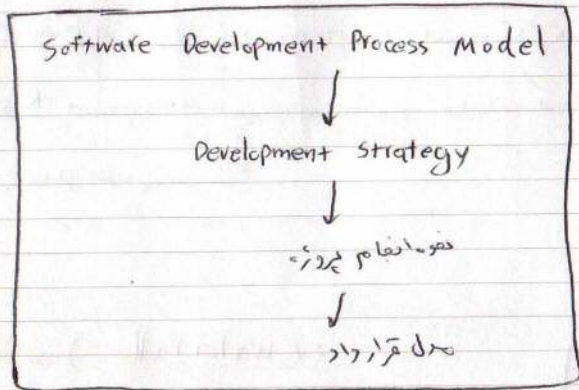 Software Development Process Model
Development Strategy
نحوه انجام پروژه
مدل قرارداد